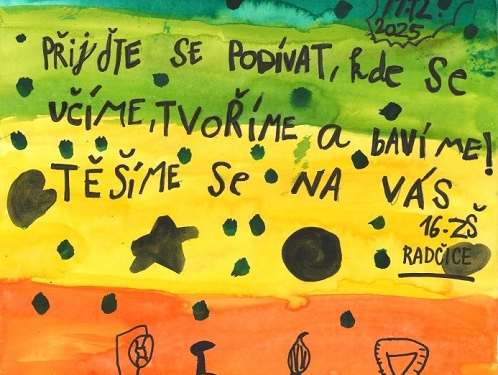 2025
PŘIJĎTE SE PODÍVAT, kde se
UČÍME, TVOŘÍME a BAVÍME!
TĚŠÍME se NA VÁS
16. ZŠ
RADČICE